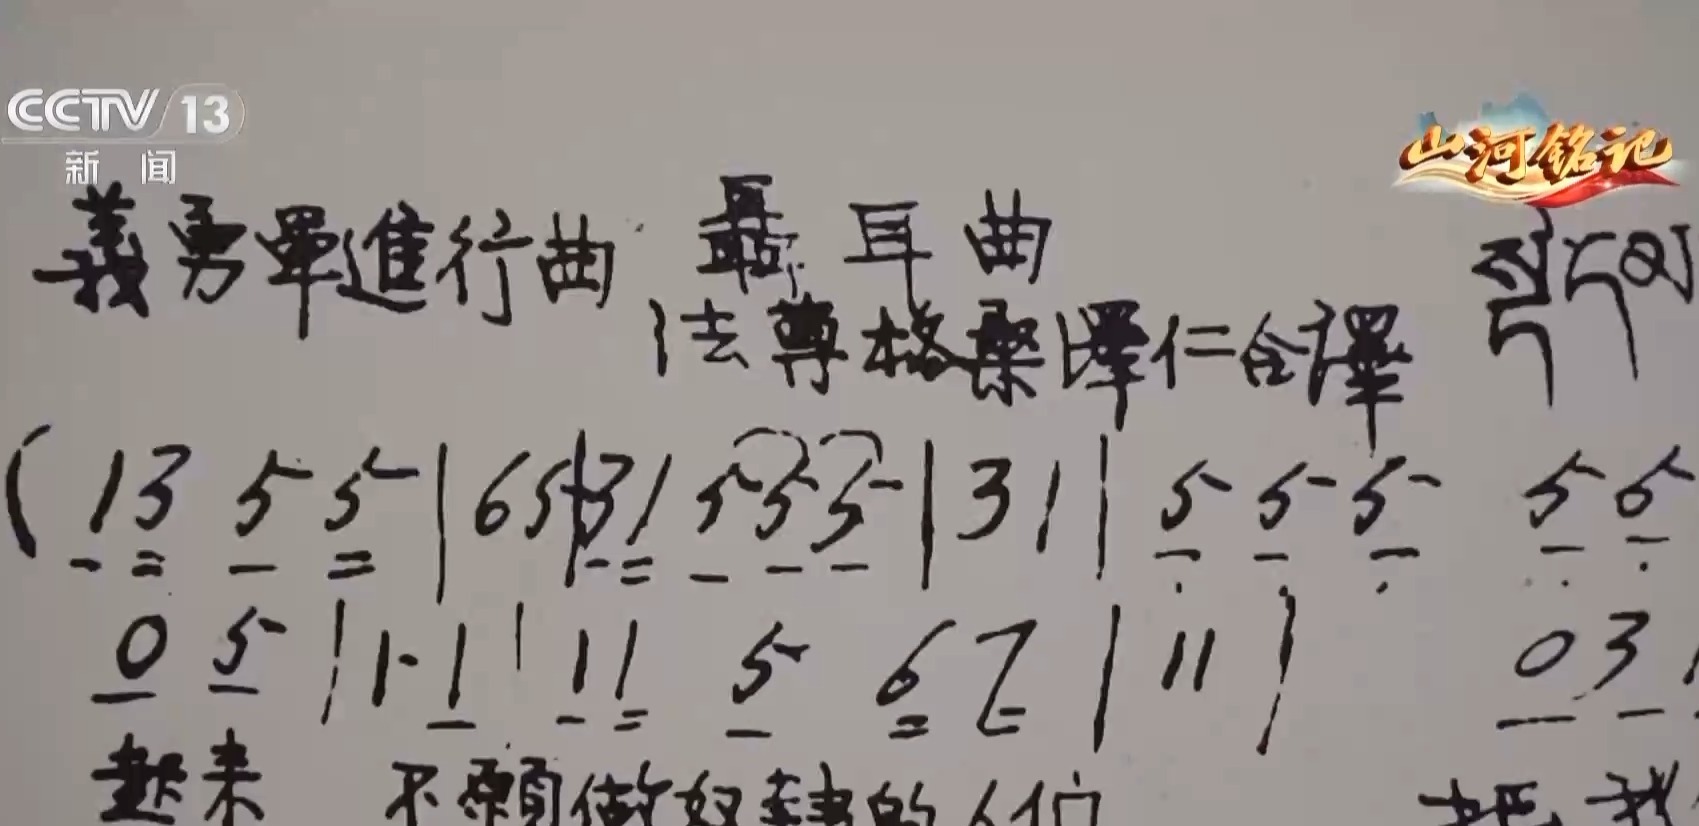 CCTV 13
新闻
山河铭记
義勇軍進行曲 聶耳曲
法尊格桑澤仁合譯
( 13 5 5 | 65 | 31 5 5 5 | 3 1 | 5 5 5 5 5
0 5 | 1· 1 | 11 5 6 7 | 11 | 03
起来 不願做奴隸的人们 把我